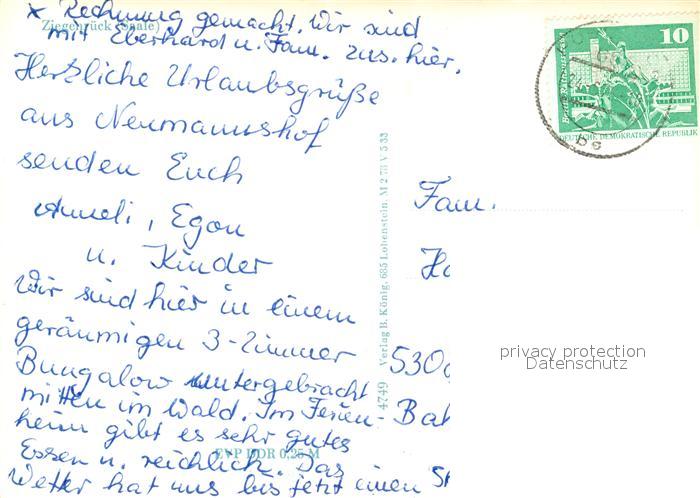 * Rechnung gemacht. Wir sind
mit Eberhard u. Fam. zus. hier.
Ziegenrück (Saale)
Herzliche Urlaubsgrüße
aus Neumannshof
senden Euch
Anneli, Egon
u. Kinder
Wir sind hier in einem
geräumigen 3-Zimmer
Bungalow untergebracht
mitten im Wald. Im Ferien-
heim gibt es sehr gutes
Essen u. reichlich. Das
Wetter hat uns bis jetzt einen
EVP DDR 0,25 M
4749 Verlag B. König, 685 Lobenstein. M 2 78 V 5 33
10
DEUTSCHE DEMOKRATISCHE REPUBLIK
Fam.
530
privacy protection
Datenschutz